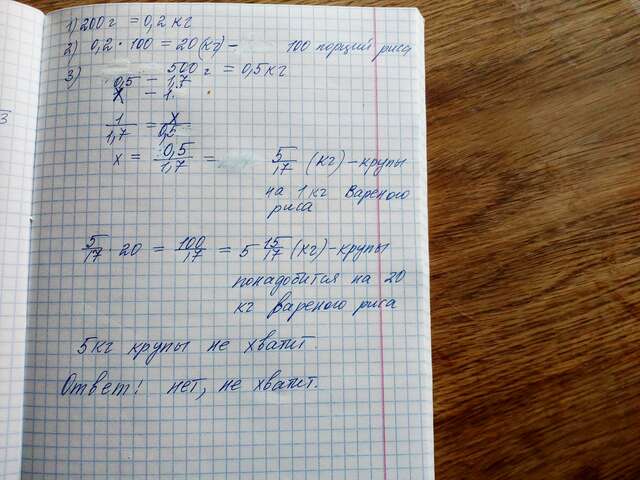 1) 200 г = 0,2 кг
2) 0,2 · 100 = 20 (кг) – 100 порций риса
3) 500 г = 0,5 кг
0,5 – 1,7
x – 1.
1/1,7 = x/0,5
x = 0,5/1,7 = 5/17 (кг) – крупы
на 1 кг вареного
риса
5/17 · 20 = 100/17 = 5 15/17 (кг) – крупы
понадобится на 20
кг вареного риса
5 кг крупы не хватит.
Ответ! нет, не хватит.
3